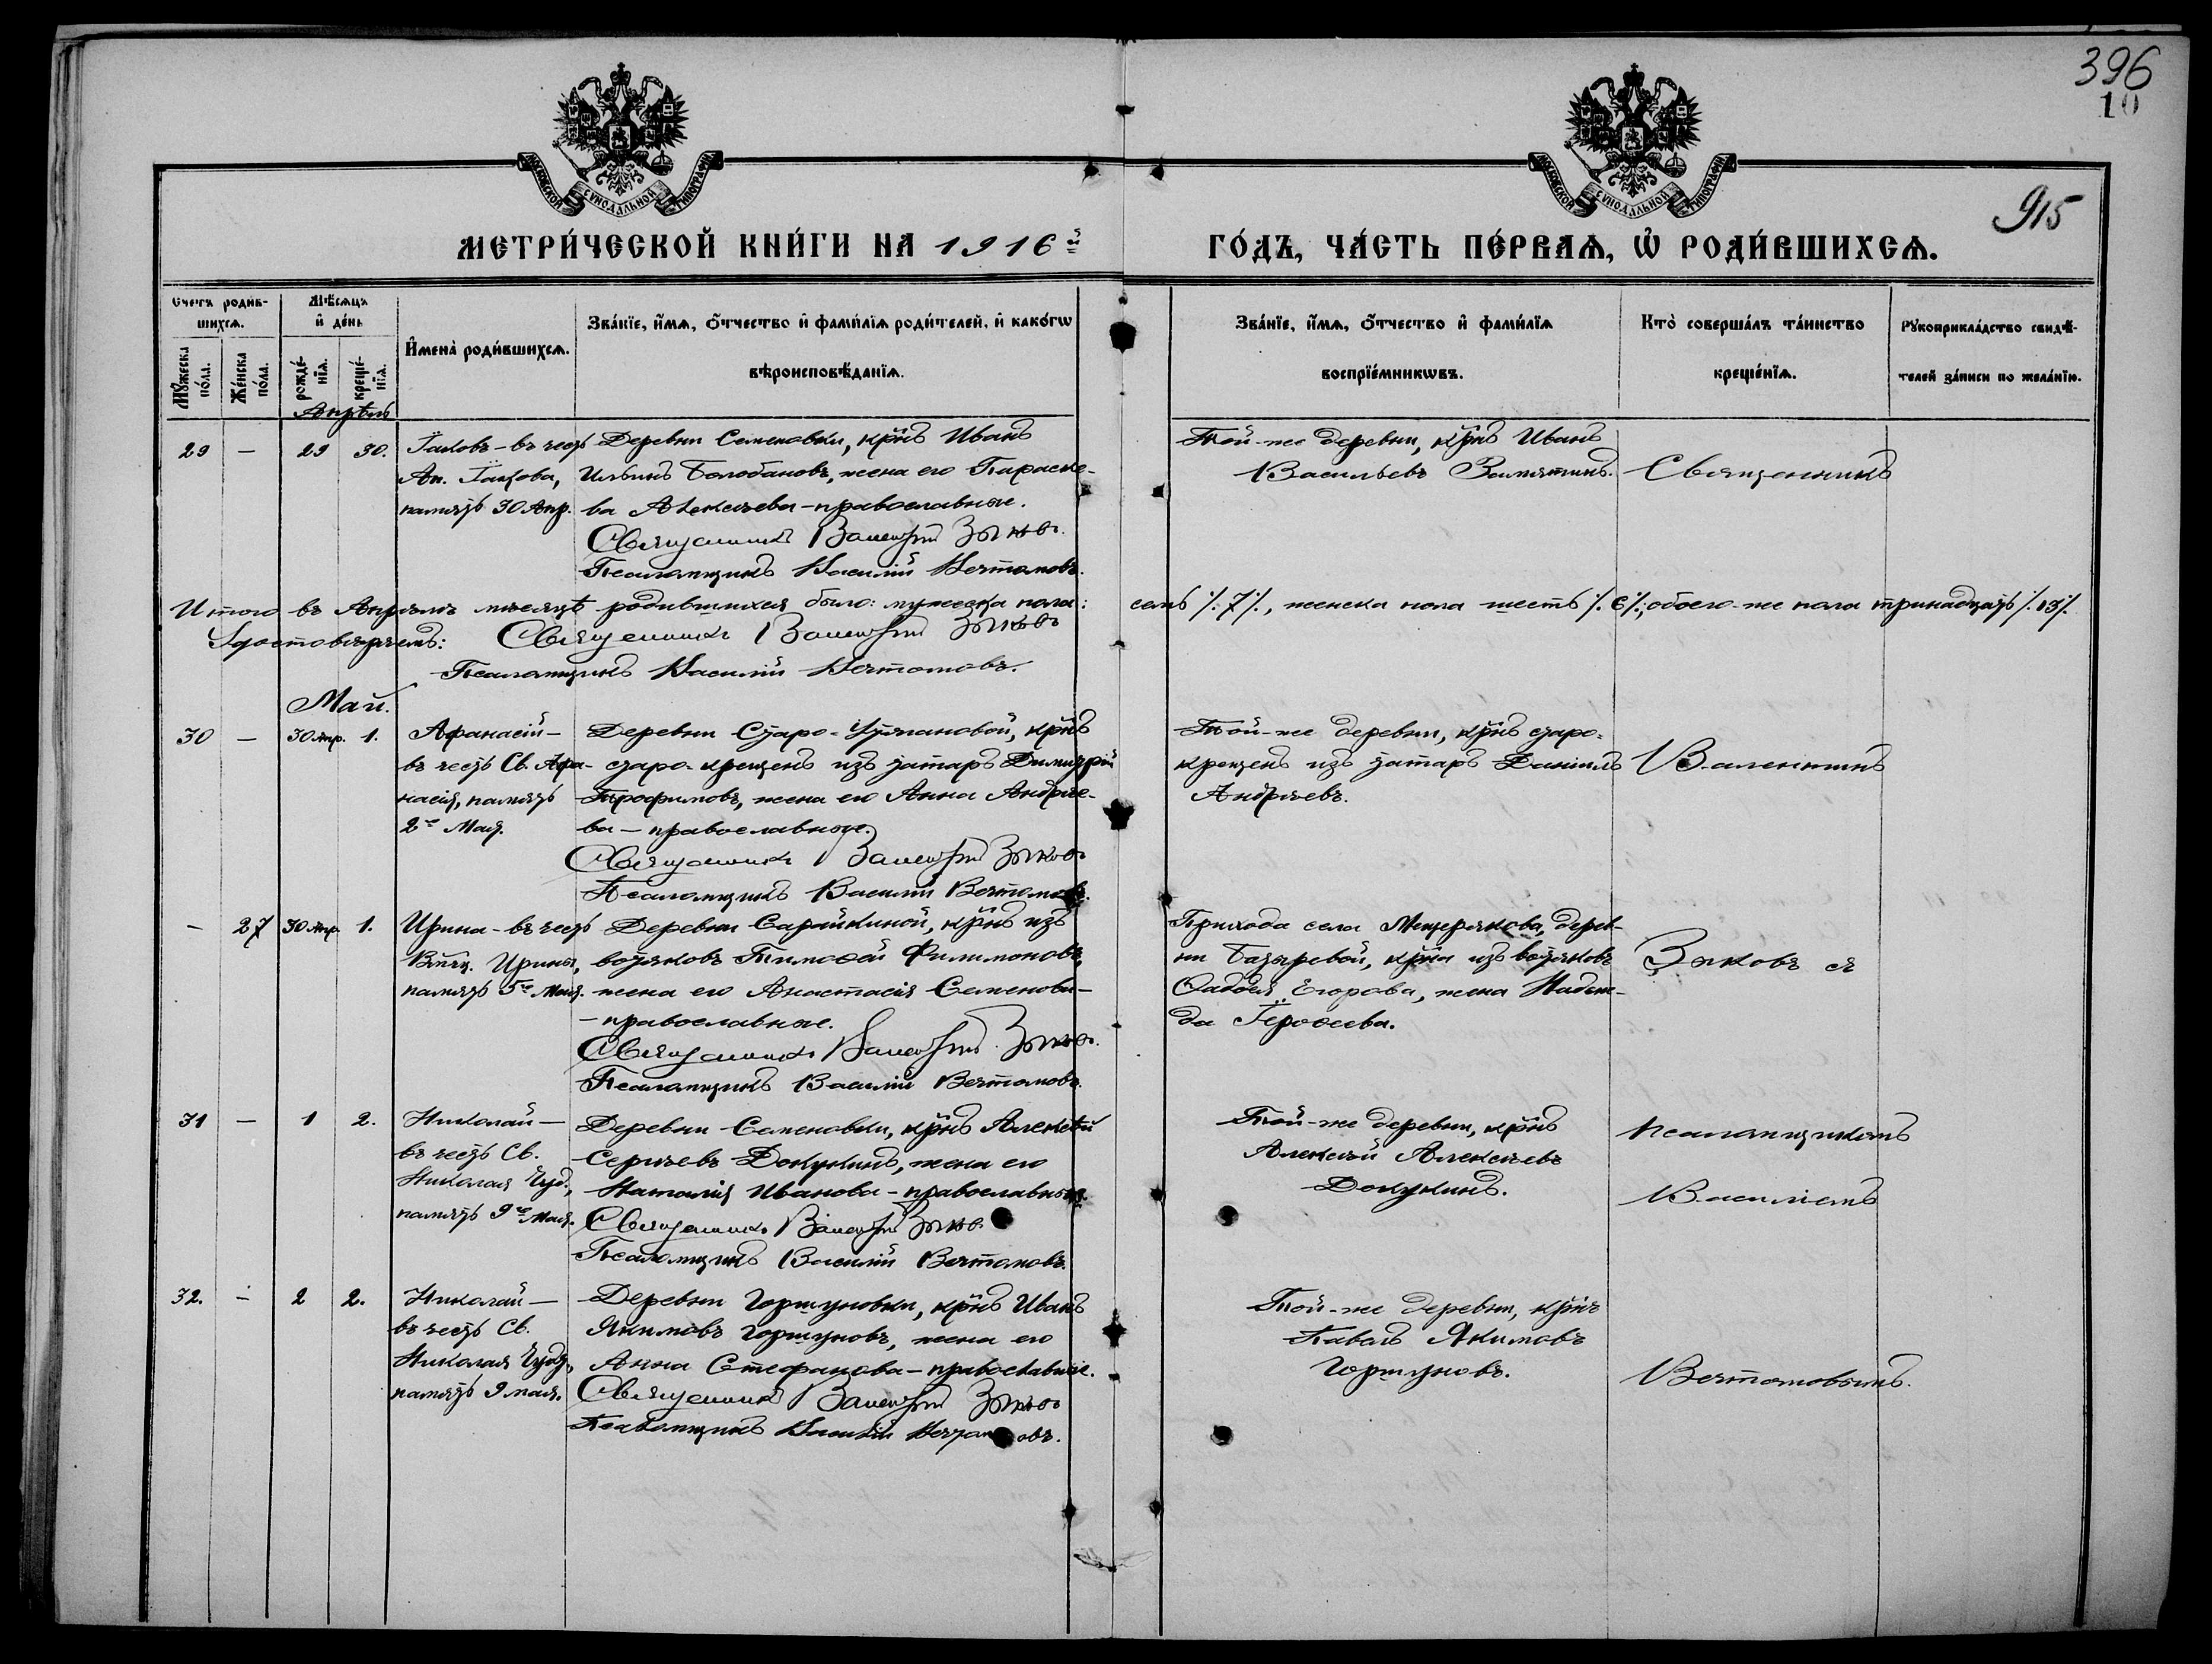 396
10
915
МОСКОВСКОЙ СѴНОДАЛЬНОЙ ТИПОГРАФІИ
МОСКОВСКОЙ СѴНОДАЛЬНОЙ ТИПОГРАФІИ
МЕТРИ́ЧЕСКОЙ КНИ́ГИ НА 1916й ГО́ДЪ, ЧА́СТЬ ПЕ́РВАѦ, Ѡ҆ РОДИ́ВШИХСѦ.
Счетъ роди́в-
шихсѧ.
Мꙋ́жеска
по́ла.
Же́нска
по́ла.
Мѣ́сѧцъ
и҆ де́нь
рожде́-
нїѧ.
креще́-
нїѧ.
И҆мена̀ роди́вшихсѧ.
Зва́нїе, и҆́мѧ, ѻ҆́тчество и҆ фами́лїѧ роди́телей, и҆ како́гѡ
вѣроисповѣ́данїѧ.
Зва́нїе, и҆́мѧ, ѻ҆́тчество и҆ фами́лїѧ
воспрїе́мникѡвъ.
Кто̀ соверша́лъ та́инство
креще́нїѧ.
Рꙋкоприкла́дство свидѣ́-
телей за́писи по жела́нїю.
Апрѣль
29 — 29 30.
Іаковъ – въ честь
Ап. Іакова,
память 30 Апр.
Деревни Семеновки, кр̃нъ Иванъ
Ильинъ Болобановъ, жена его Параске-
ва Алексѣева – православные.
Священникъ Валентинъ Зыковъ.
Псаломщикъ Василій Вечтомовъ.
Той-же деревни, кр̃нъ Иванъ
Васильевъ Замятинъ.
Священникъ
Итого въ Апрѣлѣ мѣсяцѣ родившихся было: мужеска пола: семь /.7/., женска пола шесть /.6/.; обоего же пола тринадцать /.13/.
Удостовѣряемъ: Священникъ Валентинъ Зыковъ
Псаломщикъ Василій Вечтомовъ.
Май.
30 — 30 Апр. 1.
Афанасій –
въ честь Св. Афа-
насія, память
2го Мая.
Деревни Старо-Утчановой, кр̃нъ
старо-крещенъ изъ татаръ Димитрій
Трофимовъ, жена его Анна Андрѣе-
ва – православные.
Священникъ Валентинъ Зыковъ
Псаломщикъ Василій Вечтомовъ.
Той-же деревни, кр̃нъ старо-
крещенъ изъ татаръ Даніилъ
Андрѣевъ.
Валентинъ
— 27 30 Апр. 1.
Ирина – въ честь
Вмч. Ирины,
память 5го Мая.
Деревни Сарайкиной, кр̃нъ изъ
вотяковъ Тимоѳей Филимоновъ,
жена его Анастасія Семенова –
– православные.
Священникъ Валентинъ Зыковъ.
Псаломщикъ Василій Вечтомовъ.
Прихода села Мещерякова, дерев-
ни Базыревой, кр̃на изъ вотяковъ
Ѳаддея Егорова, жена Надеж-
да Героѳеева.
Зыковъ съ
31 — 1 2.
Николай –
въ честь Св.
Николая Чуд.,
память 9го Мая.
Деревни Семеновки, кр̃нъ Алексѣй
Сергѣевъ Докукинъ, жена его
Наталія Иванова – православные.
Священникъ Валентинъ Зыковъ
Псаломщикъ Василій Вечтомовъ.
Той-же деревни, кр̃нъ
Алексѣй Алексѣевъ
Докукинъ.
псаломщикомъ
Василіемъ
32. — 2 2.
Николай –
въ честь Св.
Николая Чуд.,
память 9 мая.
Деревни Горшуновки, кр̃нъ Иванъ
Якимовъ Горшуновъ, жена его
Анна Стефанова – православные.
Священникъ Валентинъ Зыковъ
Псаломщикъ Василій Вечтомовъ.
Той-же деревни, кр̃нъ
Павелъ Якимовъ
Горшуновъ.
Вечтомовымъ.